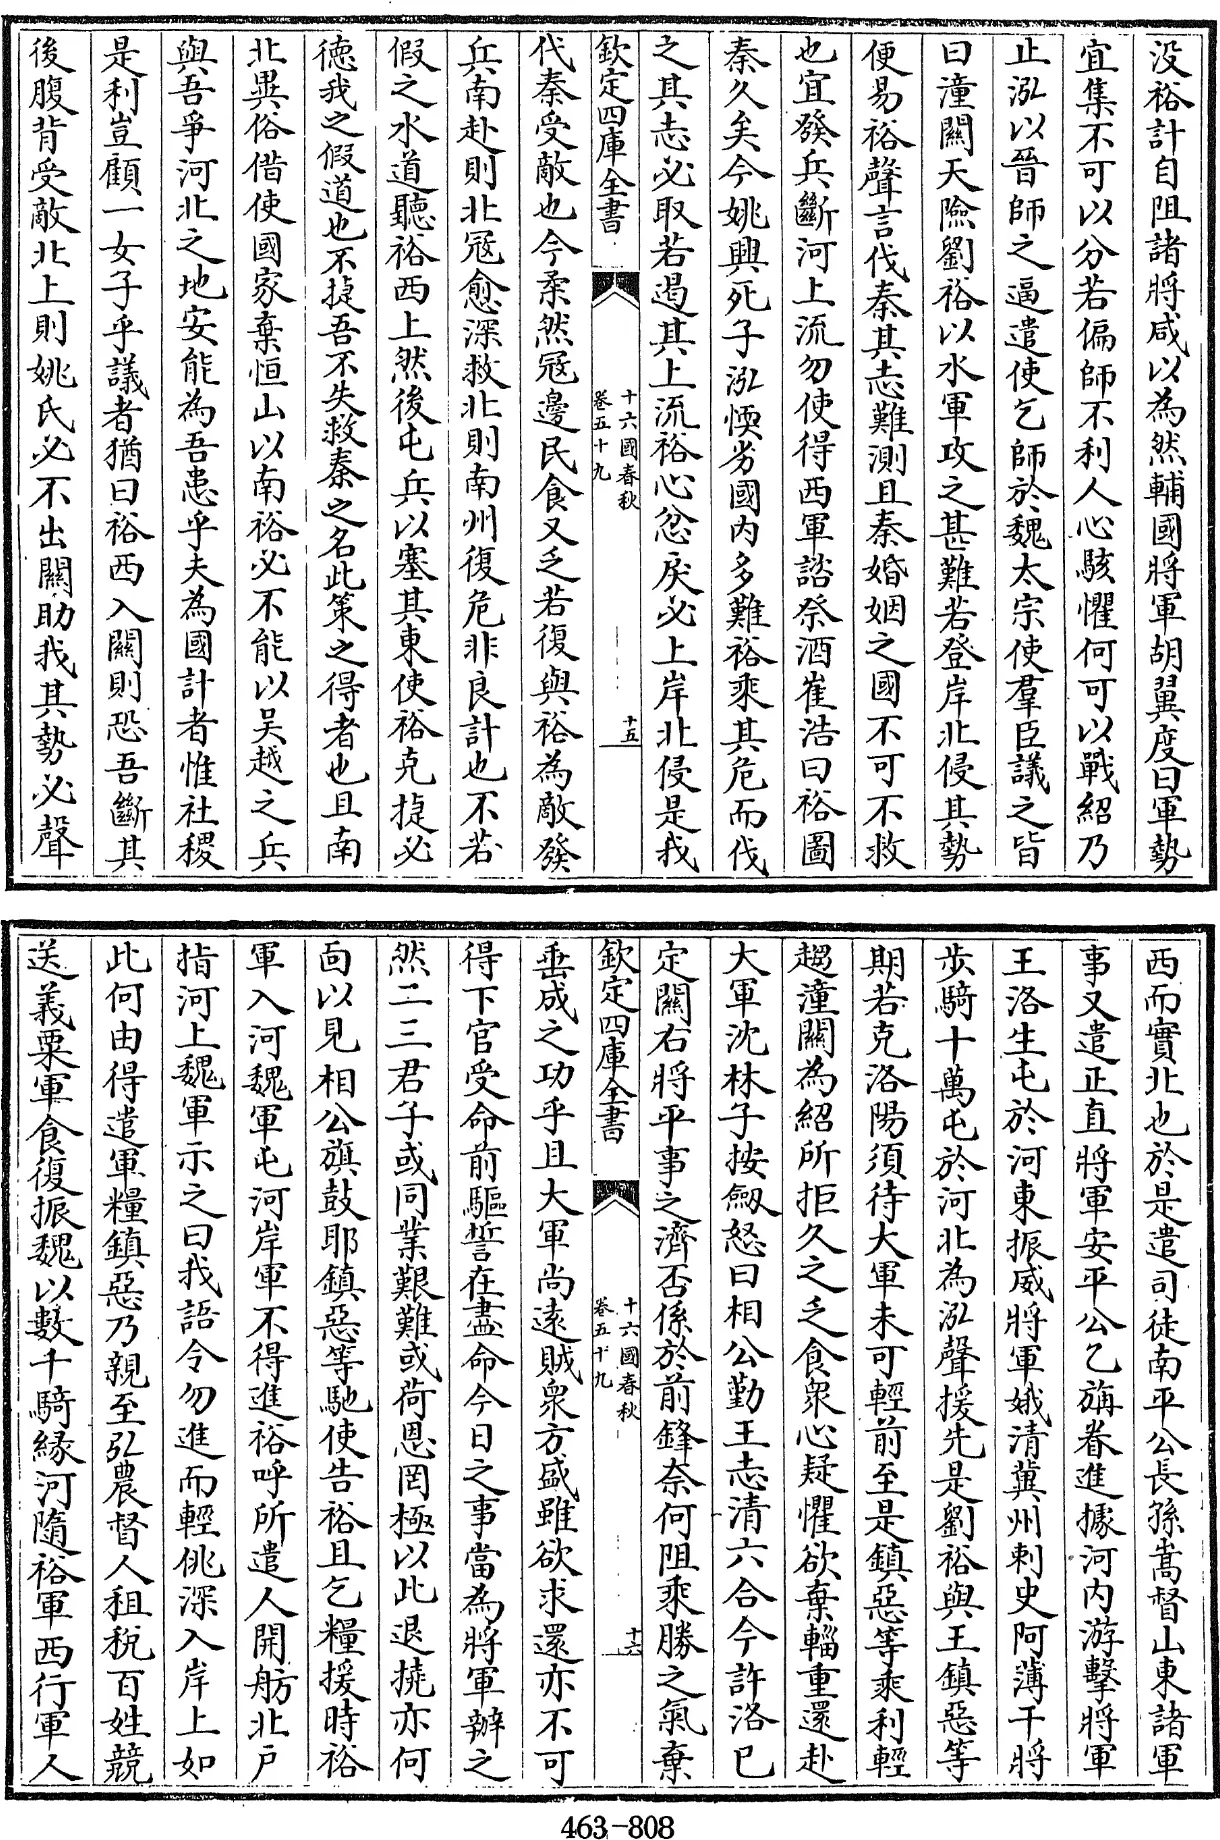 没裕計自阻諸將咸以為然輔國將軍胡翼度曰軍勢
宜集不可以分若偏師不利人心駭懼何可以戰紹乃
止泓以晉師之逼遣使乞師於魏太宗使羣臣議之皆
曰潼關天險劉裕以水軍攻之甚難若登岸北侵其勢
便易裕聲言伐秦其志難測且秦婚姻之國不可不救
也宜發兵斷河上流勿使得西軍諮祭酒崔浩曰裕圖
秦久矣今姚興死子泓愞劣國內多難裕乘其危而伐
之其志必取若遏其上流裕心忿戾必上岸北侵是我
欽定四庫全書
十六國春秋
卷五十九
十五
代秦受敵也今柔然寇邊民食又乏若復與裕為敵發
兵南赴則北寇愈深救北則南州復危非良計也不若
假之水道聽裕西上然後屯兵以塞其東使裕克捷必
德我之假道也不捷吾不失救秦之名此策之得者也且南
北異俗借使國家棄恒山以南裕必不能以吳越之兵
與吾爭河北之地安能為吾患乎夫為國計者惟社稷
是利豈顧一女子乎議者猶曰裕西入關則恐吾斷其
後腹背受敵北上則姚氏必不出關助我其勢必聲
西而實北也於是遣司徒南平公長孫嵩督山東諸軍
事又遣正直將軍安平公乙旃眷進據河內游擊將軍
王洛生屯於河東振威將軍娥清冀州刺史阿薄干將
步騎十萬屯於河北為泓聲援先是劉裕與王鎮惡等
期若克洛陽須待大軍未可輕前至是鎮惡等乘利輕
趨潼關為紹所拒久之乏食衆心疑懼欲棄輜重還赴
大軍沈林子按劒怒曰相公勤王志清六合今許洛已
定關右將平事之濟否係於前鋒奈何阻乘勝之氣棄
欽定四庫全書
十六國春秋
卷五十九
十六
垂成之功乎且大軍尚遠賊衆方盛雖欲求還亦不可
得下官受命前驅誓在盡命今日之事當為將軍辦之
然二三君子或同業艱難或荷恩罔極以此退撓亦何
面以見相公旗鼓耶鎮惡等馳使告裕且乞糧援時裕
軍入河魏軍屯河岸軍不得進裕呼所遣人開舫北戶
指河上魏軍示之曰我語令勿進而輕佻深入岸上如
此何由得遣軍糧鎮惡乃親至弘農督人租稅百姓競
送義粟軍食復振魏以數千騎緣河隨裕軍西行軍人
463-808